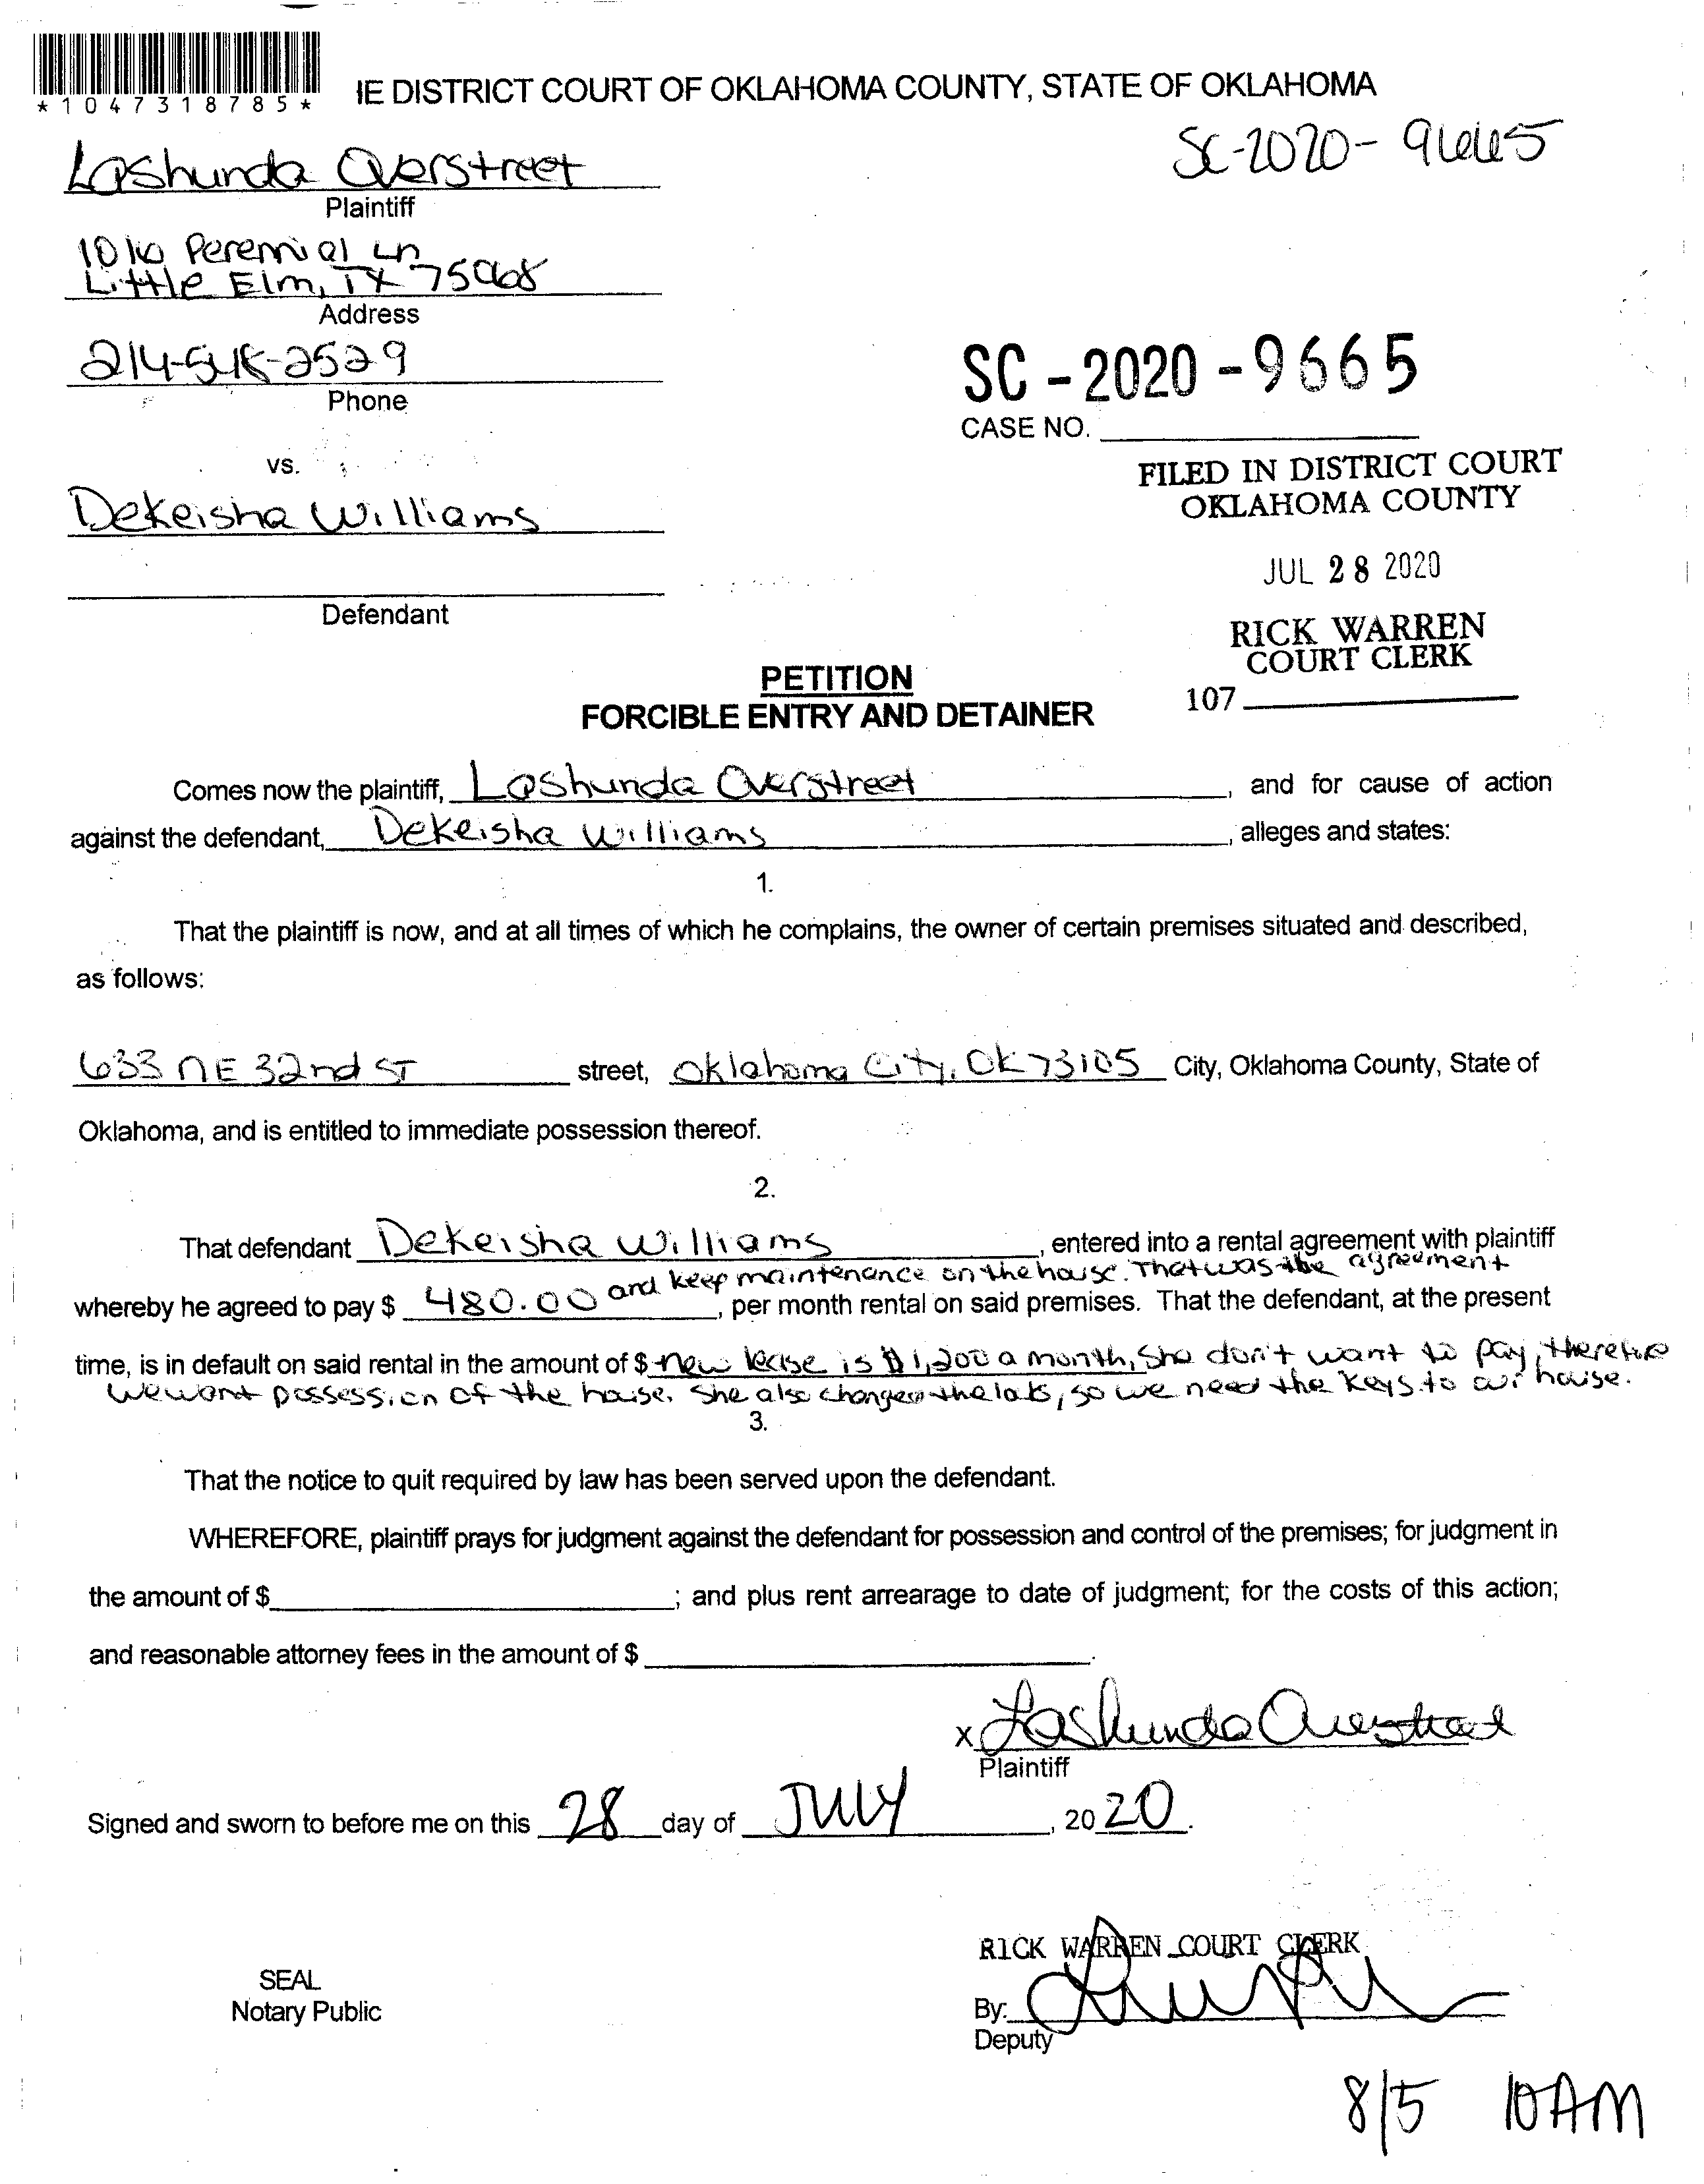 *1047318785*
IE DISTRICT COURT OF OKLAHOMA COUNTY, STATE OF OKLAHOMA
SC-2020-9665
Lashunda Overstreet
Plaintiff
1016 Perennial Ln
Little Elm, TX 75068
Address
214-548-2529
Phone
SC-2020-9665
CASE NO.
vs.
FILED IN DISTRICT COURT
OKLAHOMA COUNTY
Dekeisha Williams
JUL 28 2020
Defendant
RICK WARREN
COURT CLERK
107
PETITION
FORCIBLE ENTRY AND DETAINER
Comes now the plaintiff, Lashunda Overstreet, and for cause of action
against the defendant, Dekeisha Williams, alleges and states:
1.
That the plaintiff is now, and at all times of which he complains, the owner of certain premises situated and described,
as follows:
633 NE 32nd ST street, Oklahoma City, OK 73105 City, Oklahoma County, State of
Oklahoma, and is entitled to immediate possession thereof.
2.
That defendant Dekeisha Williams, entered into a rental agreement with plaintiff
and keep maintenance on the house. That was the agreement
whereby he agreed to pay $ 480.00, per month rental on said premises. That the defendant, at the present
time, is in default on said rental in the amount of $ new lease is $1,200 a month, she don't want to pay, therefore
we want possession of the house. She also changed the loks, so we need the keys to our house.
3.
That the notice to quit required by law has been served upon the defendant.
WHEREFORE, plaintiff prays for judgment against the defendant for possession and control of the premises; for judgment in
the amount of $; and plus rent arrearage to date of judgment; for the costs of this action;
and reasonable attorney fees in the amount of $.
x Lashunda Overstreet
Plaintiff
Signed and sworn to before me on this 28 day of JULY, 2020.
RICK WARREN COURT CLERK
SEAL
Notary Public
By:
Deputy
8/5 10AM